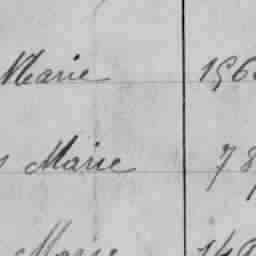 Marie 196
Marie 78
Marie 149